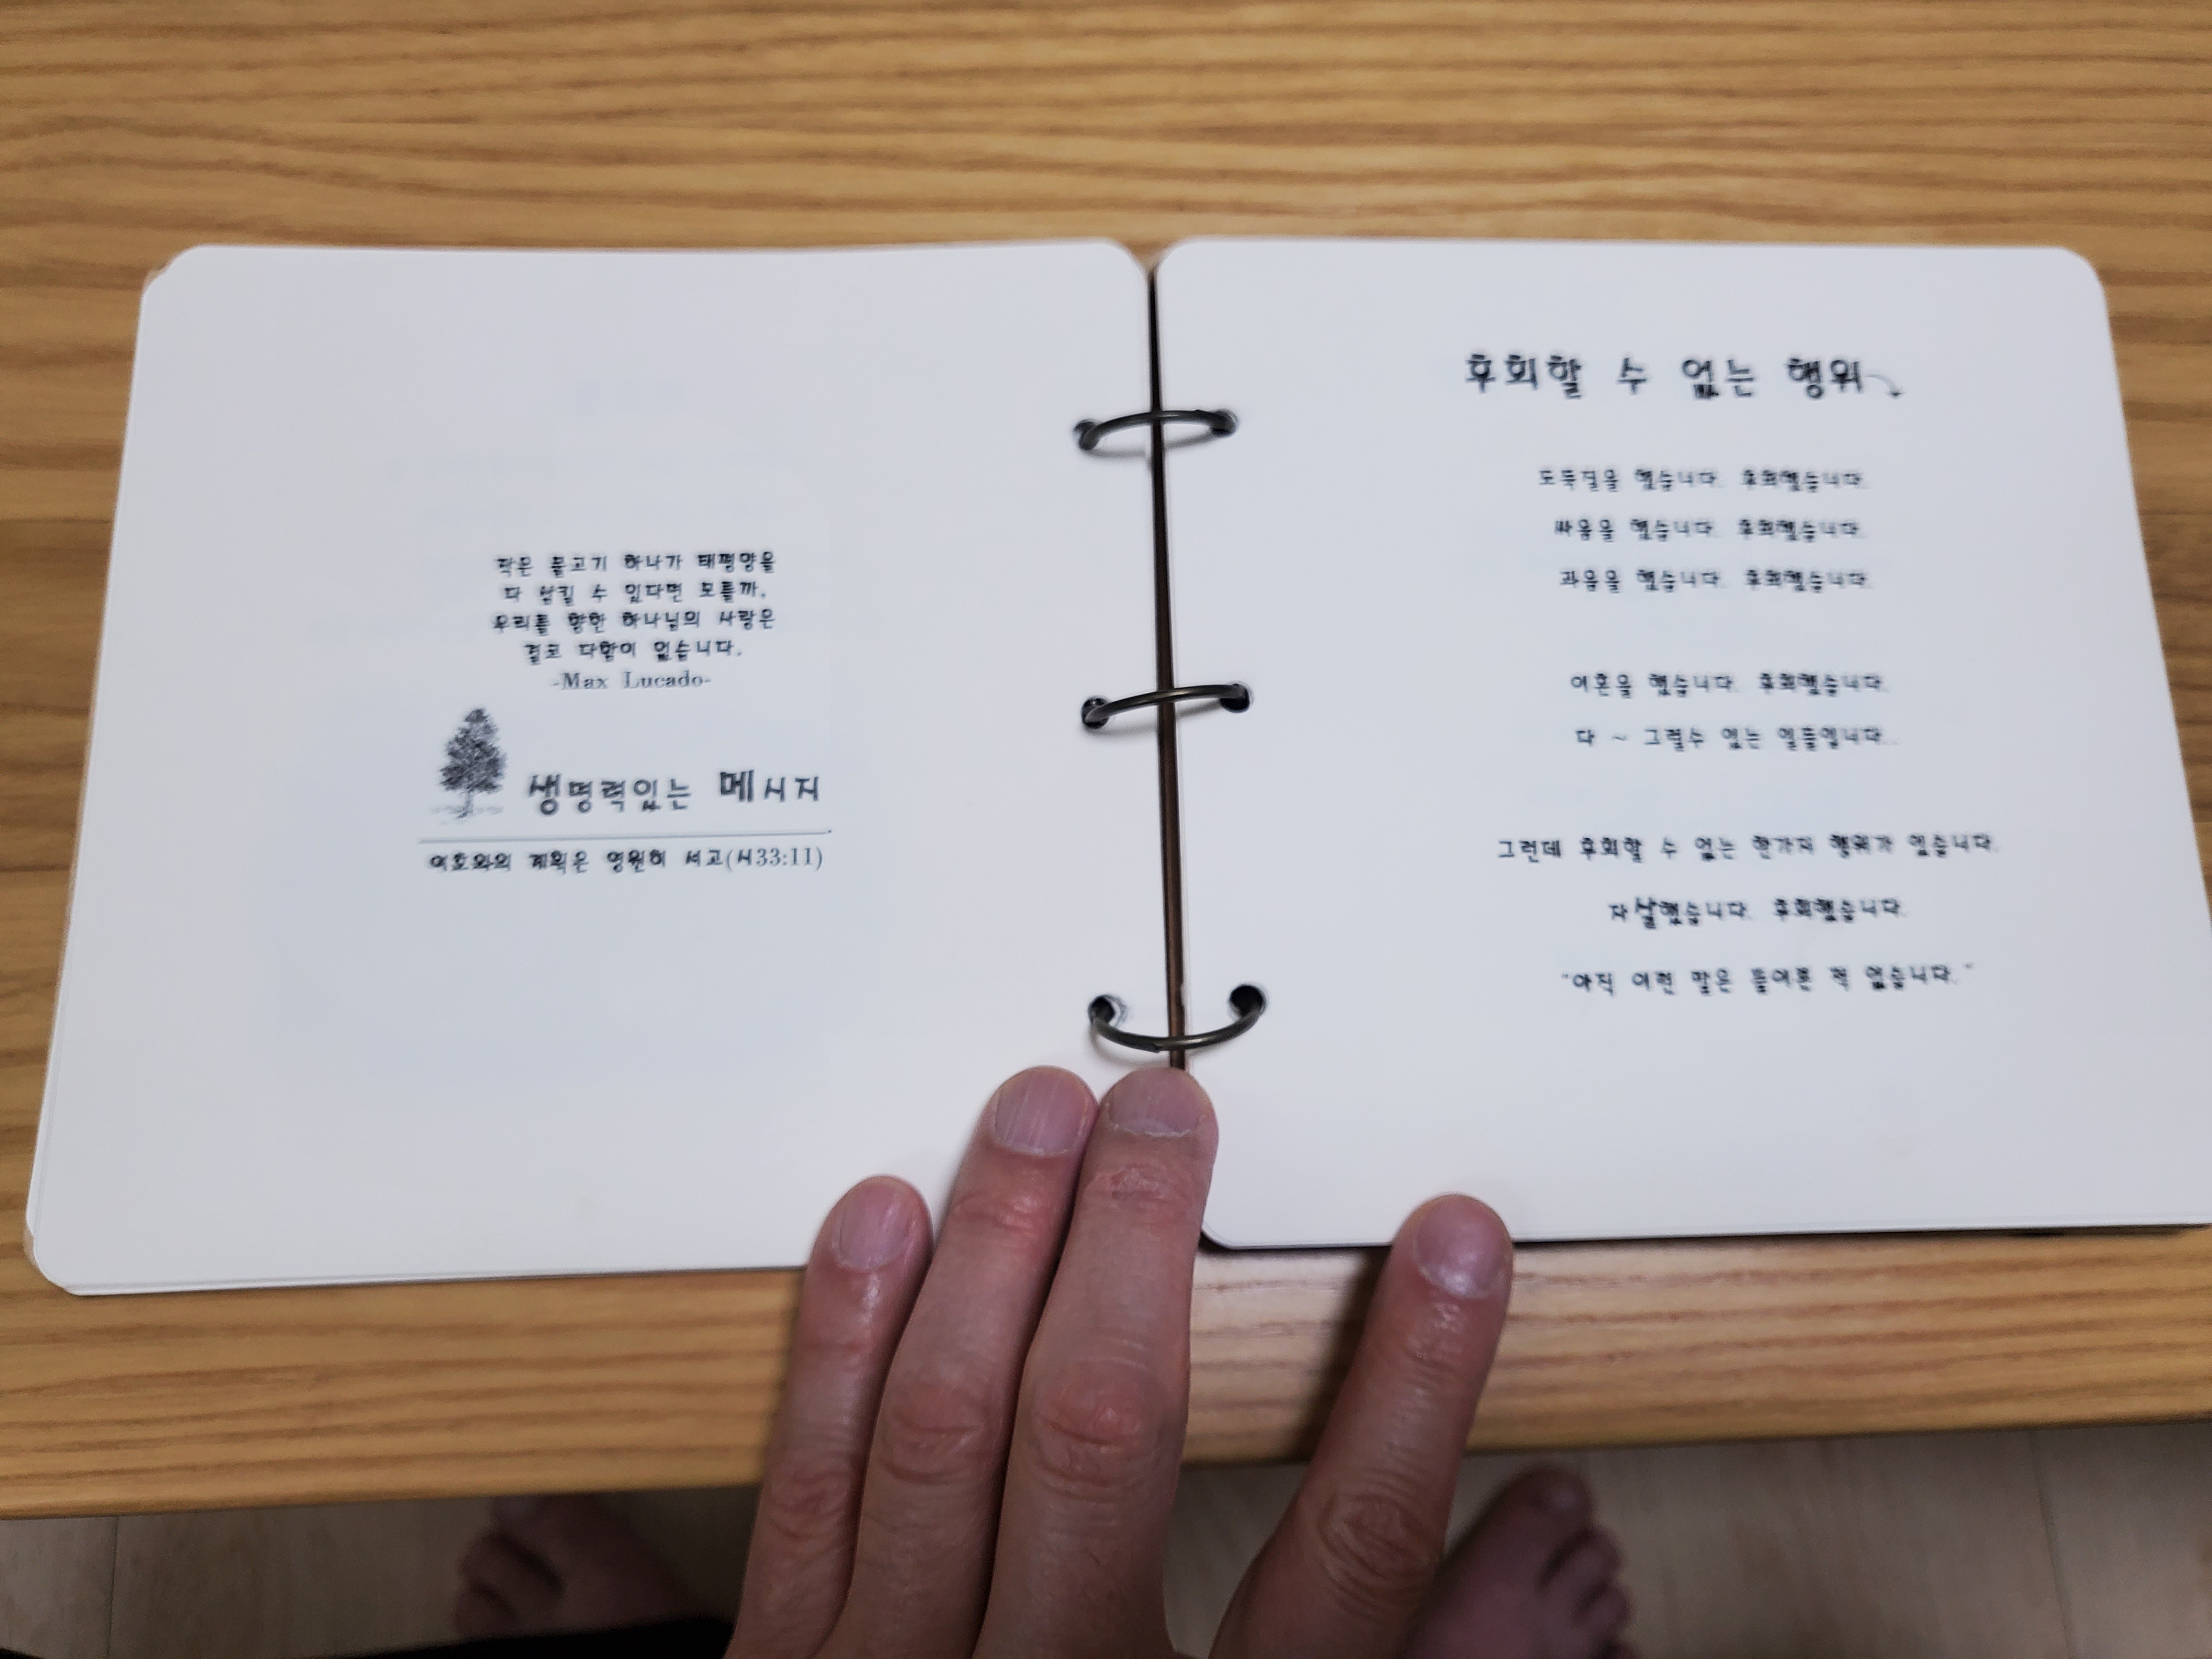 작은 물고기 하나가 태평양을
다 삼킬 수 있다면 모를까,
우리를 향한 하나님의 사랑은
결코 다함이 없습니다.
-Max Lucado-
생명력있는 메시지
여호와의 계획은 영원히 서고(시33:11)
후회할 수 없는 행위
도둑질을 했습니다. 후회했습니다.
싸움을 했습니다. 후회했습니다.
과음을 했습니다. 후회했습니다.
이혼을 했습니다. 후회했습니다.
다 ~ 그럴수 있는 일들입니다...
그런데 후회할 수 없는 한가지 행위가 있습니다.
자살했습니다. 후회했습니다.
"아직 이런 말은 들어본 적 없습니다."